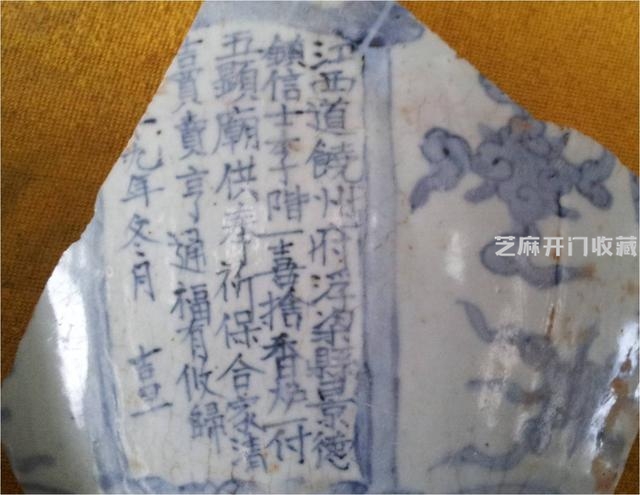 江西道饒州府浮梁縣景德
鎮信士李階一喜捨香炉一付
五顯廟供奉祈保合家清
吉買賣亨通福有攸歸
九年冬月 吉旦
芝麻开门收藏